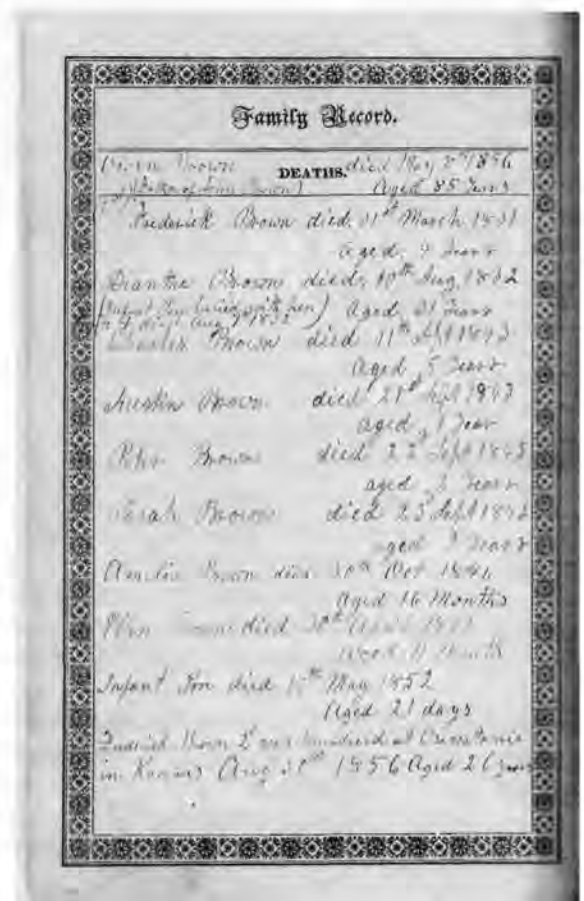 Family Record.
Owen Brown died May 8th 1856
DEATHS.
(Father of John Brown) Aged 85 Years
Frederick Brown died, 31st March 1831
aged, 4 Years
Dianthe Brown died, 10th Aug, 1832
(Infant Son buried with her) Aged, 31 Years
Aug 1832
Charles Brown died 11th Sept 1843
Aged, 5 Years
Austin Brown died 21st Sept 1843
aged, 1 Year
Peter Brown died 22 Sept 1843
aged, Years
Sarah Brown died 23 Sept 1843
aged 9 Years
Amelia Brown died 30th Oct 1846
Aged 16 Months
Ellen died 30th April
Aged 11 Months
Infant Son died May 1852
Aged 21 days
Frederick Brown 2d was murdered at Osawatomie
in Kansas Aug 30th 1856 Aged 26 years